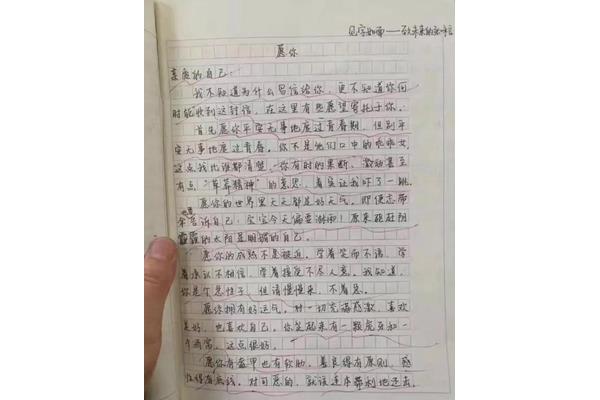 见字如面——致未来的一封信
愿你
亲爱的自己:
我不知道为什么写信给你,更不知道你何
时能收到这封信,在这里有些愿望寄托于你。
首先愿你平安无事地度过青春期,但别平
安无事地度过青春。你不是他们口中的乖乖女,
这点我比谁都清楚。你有时的果断、激动甚至
有点“草莽精神”的意思,着实让我吓了一跳。
愿你的世界里天天都是好天气。即便忘带
伞也要告诉自己:宝宝今天偏要淋雨!原来能赶阴
霾的太阳是明媚的自己。
愿你的成熟不是被迫,学着笑而不语,学
着承认不相信,学着接受不尽人意。我知道,
你是个急性子,但请慢慢来,不着急。
愿你拥有好运气。对一切充满感激,喜欢
美好,也喜欢自己。你笑起来有一颗虎牙和一
个酒窝,这点很好。
愿你有盔甲也有软肋,善良得有原则,感
性得有底线。对可恶的,就该连本带利地还去。